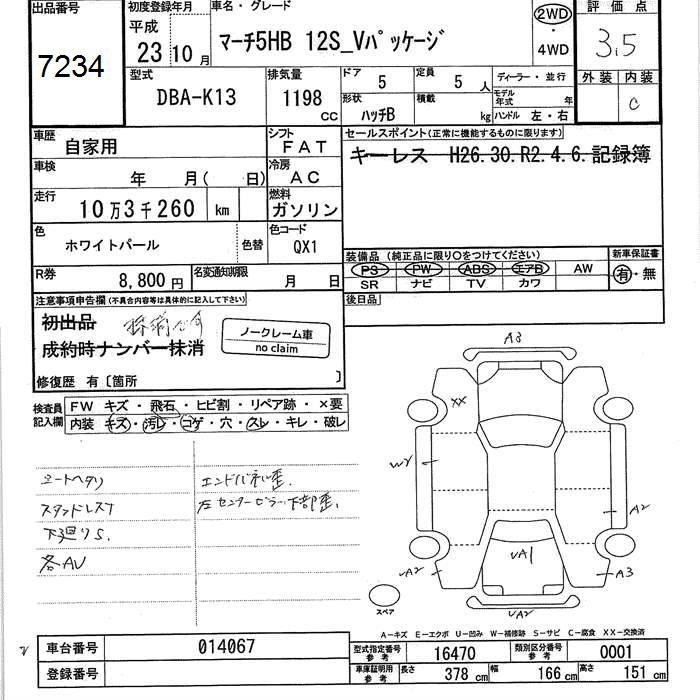 出品番号
7234
初度登録年月
平成
23 10 月
車名・グレード
マーチ5HB 12S_Vパッケージ
2WD
・
4WD
評価点
3.5
外装 内装
C
型式
DBA-K13
排気量
1198
CC
ドア
5
定員
5 人
形状
ハッチB
積載
kg
ディーラー・並行
モデル年式 年
ハンドル 左・右
車歴
自家用
シフト
FAT
セールスポイント(正常に機能するものに限ります)
キーレス H26.30.R2.4.6.記録簿
車検
年 月( 日)
冷房
AC
走行
10万3千260 km
燃料
ガソリン
色
ホワイトパール
色替
色コード
QX1
装備品 (純正品に限り○をつけてください)
PS PW ABS エアB AW
SR ナビ TV カワ
新車保証書
有・無
R券
8,800円
名変通知期限
月 日
後日品
注意事項申告欄(不具合内容等は具体的に記入して下さい)
初出品
成約時ナンバー抹消
ノークレーム車
no claim
修復歴 有〔箇所 〕
検査員記入欄
FW キズ・飛石・ヒビ割・リペア跡・×要
内装 キズ・汚レ・コゲ・穴・スレ・キレ・破レ
シートヘタリ
スタッドレス7
下廻りS.
各AU
エンドパネル歪.
左センターピラー下部歪.
A3
XX
WY
A2
A2
A1
A3
A2
スペア
A-キズ E-エクボ U-凹み W-補修跡 S-サビ C-腐食 XX-交換済
車台番号
014067
登録番号
型式指定番号
参考
16470
類別区分番号
参考
0001
車庫証明用
参考
長さ
378 cm
幅
166 cm
高さ
151 cm